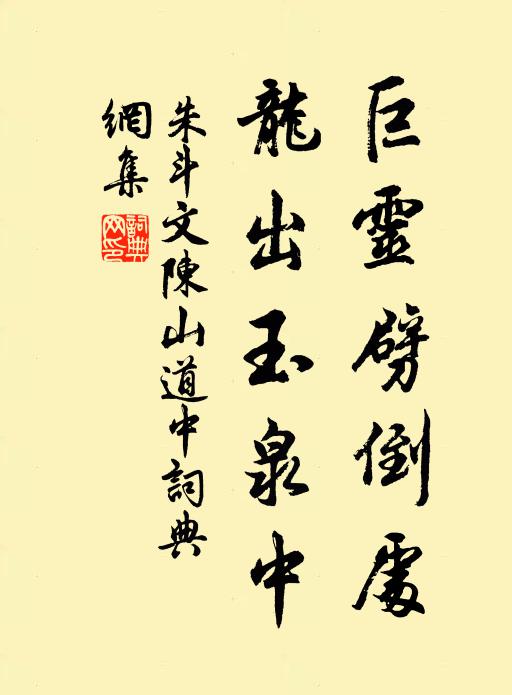 巨靈劈倒處
龍出玉泉中
朱斗文陳山道中詞典
網集
詞典
网印